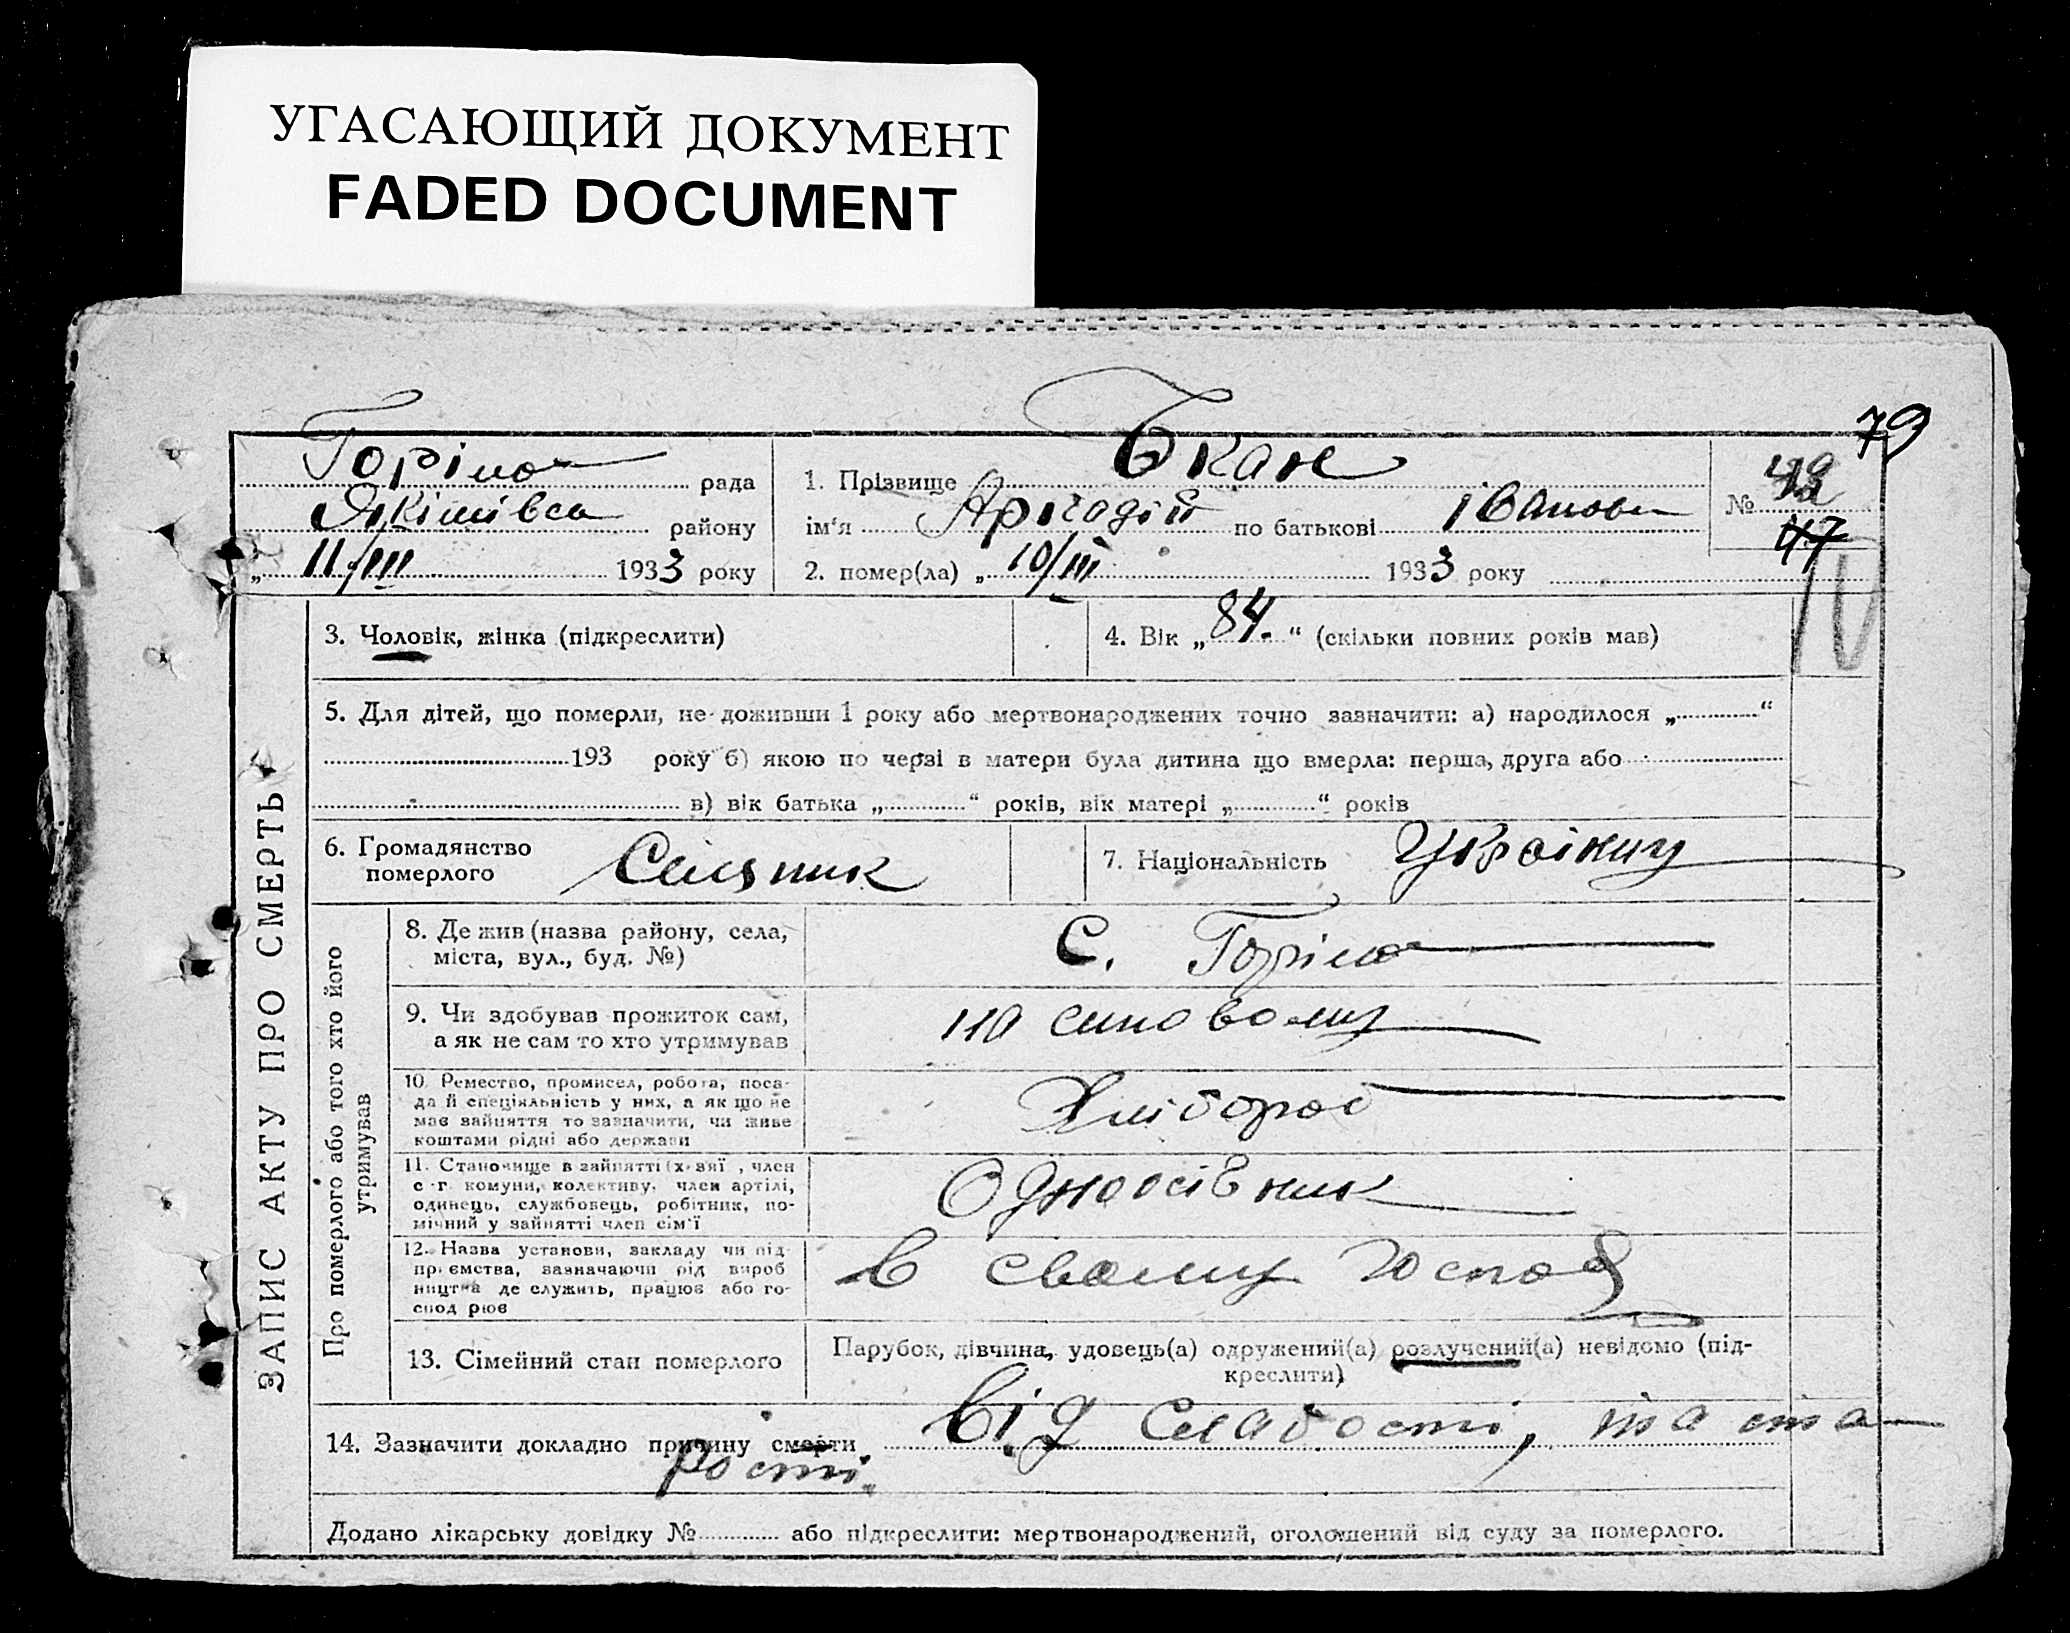 УГАСАЮЩИЙ ДОКУМЕНТ
FADED DOCUMENT
79
Горіло рада
району
„ 11/III 1933 року
1. Прізвище Бкан
ім'я по батькові Іванови
2. помер(ла) „ 10/III 1933 року
№ 47
ЗАПИС АКТУ ПРО СМЕРТЬ
3. Чоловік, жінка (підкреслити)
4. Вік „ 84. “ (скільки повних років мав)
5. Для дітей, що померли, не доживши 1 року або мертвонароджених точно зазначити: а) народилося „ “
193 року б) якою по черзі в матери була дитина що вмерла: перша, друга або
в) вік батька „ “ років, вік матері „ “ років
6. Громадянство
померлого
Селяник
7. Національність Українц
Про померлого або того хто його
утримував
8. Де жив (назва району, села,
міста, вул., буд. №)
С. Горіло
9. Чи здобував прожиток сам,
а як не сам то хто утримував
на синовому
10. Ремество, промисел, робота, поса-
да й спеціяльність у них, а як що не
має зайняття то зазначити, чи живе
коштами рідні або держави
Хлібороб
11. Становище в зайнятті (х-зяї , член
с-г. комуни, колективу, член артілі,
одинець, службовець, робітник, по-
мічний у зайнятті член сім'ї
Одноосівник
12. Назва установи, закладу чи під-
приємства, зазначаючи рід вироб
ництва де служить, працює або го-
спод рює
В своему господ
13. Сімейний стан померлого
Парубок, дівчина, удовець(а) одружений(а) розлучений(а) невідомо (під-
креслити)
14. Зазначити докладно причину смерти Від слабости, та ста-
рости
Додано лікарську довідку № або підкреслити: мертвонароджений, оголошений від суду за померлого.